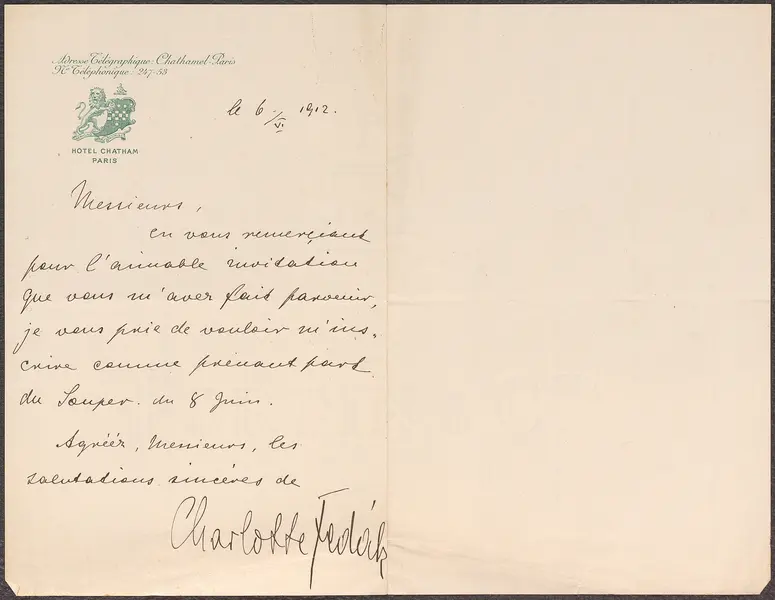 Adresse Télégraphique: Chathamel-Paris
No Téléphonique: 247-53
HOTEL CHATHAM
PARIS
le 6/VI. 1912.
Messieurs,
en vous remerçiant
pour l'aimable invitation
que vous m'avez fait parvenir,
je vous prie de vouloir m'ins-
crire comme prénant part
du Souper du 8 Juin.
Agréér, Messieurs, les
salutations sincéres de
Charlotte Fedák